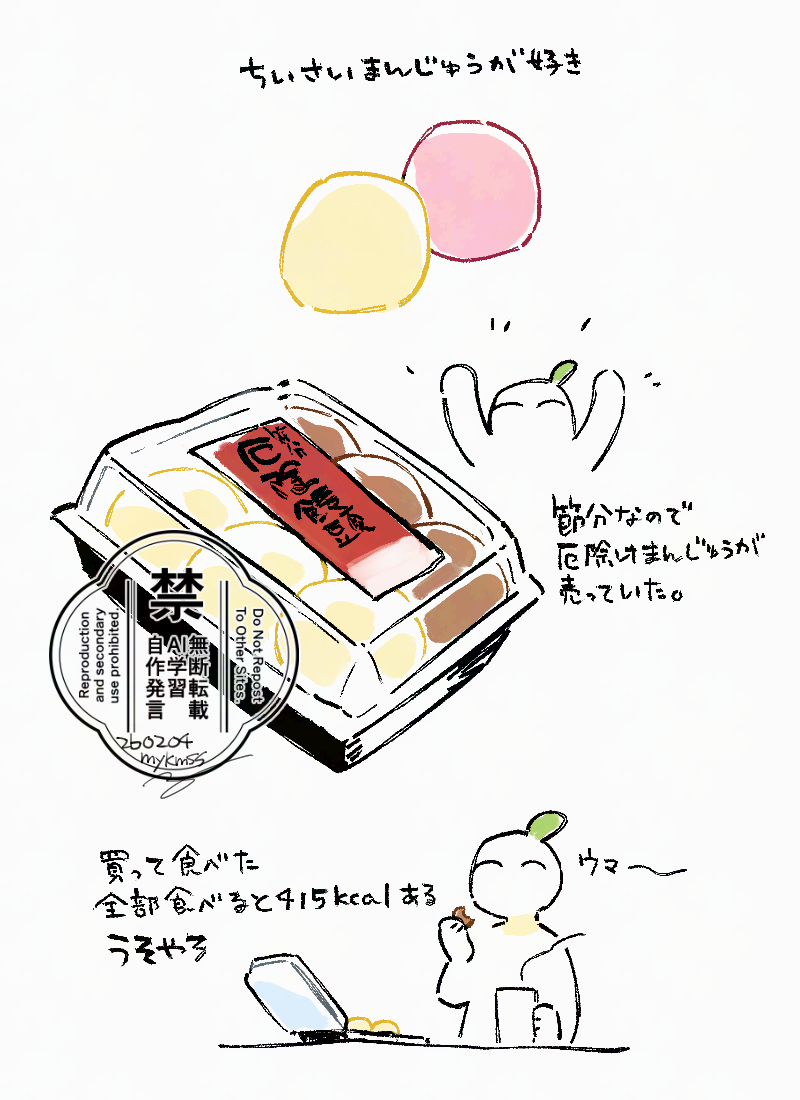 ちいさいまんじゅうが好き
厄除饅頭
節分なので
厄除けまんじゅうが
売っていた。
禁
無断転載
AI学習
自作発言
Do Not Repost
To Other Sites.
Reproduction
and secondary
use prohibited.
260204
mykmss
買って食べた
全部食べると415kcalある
うそやろ
ウマ〜